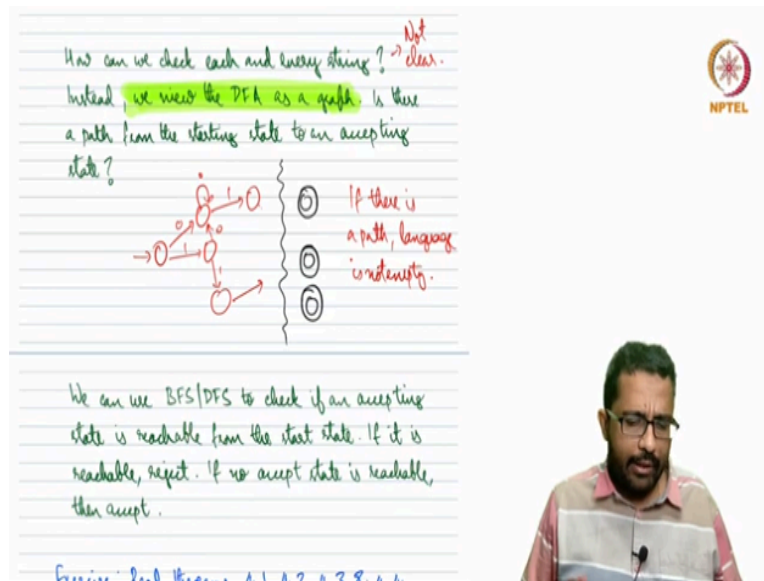 How can we check each and every string? → Not clear.
Instead, we view the DFA as a graph. Is there
a path from the starting state to an accepting
state?
0
1
1
0
1
If there is
a path, language
is not empty.
NPTEL
We can use BFS/DFS to check if an accepting
state is reachable from the start state. If it is
reachable, reject. If no accept state is reachable,
then accept.
Exercise: Read theorems 4.1, 4.2, 4.3